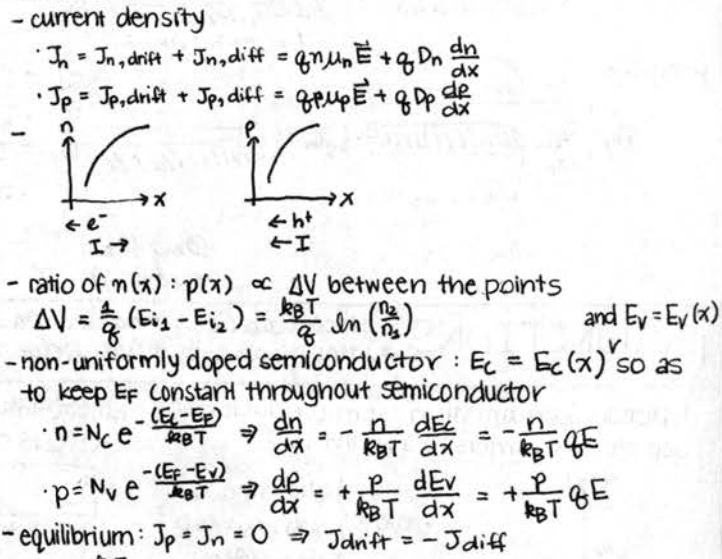 - current density
· Jn = Jn,drift + Jn,diff = qnμnE⃗ + qDn dn/dx
· Jp = Jp,drift + Jp,diff = qpμpE⃗ + qDp dp/dx
- n x p x
← e⁻ ← h⁺
I → ← I
- ratio of n(x) : p(x) ∝ ΔV between the points
ΔV = 1/q (Ei1 - Ei2) = kBT/q ln (n2/n1) and Ev = Ev(x)
- non-uniformly doped semiconductor : Ec = Ec(x) so as
to keep EF constant throughout semiconductor
· n = Nc e^-(Ec-EF)/kBT ⇒ dn/dx = - n/kBT dEc/dx = - n/kBT qE
· p = Nv e^-(EF-Ev)/kBT ⇒ dp/dx = + p/kBT dEv/dx = + p/kBT qE
- equilibrium : Jp = Jn = 0 ⇒ Jdrift = - Jdiff